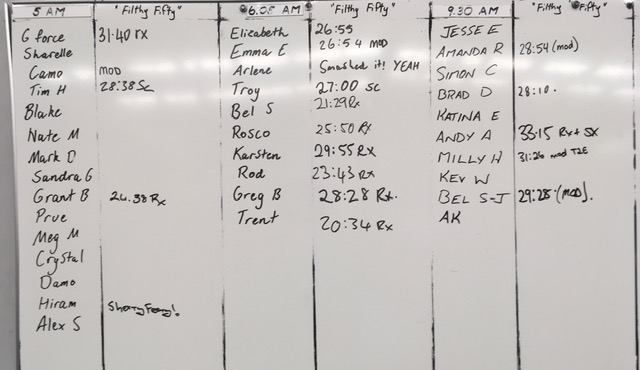 5 AM "Filthy Fifty" 6.05 AM "Filthy Fifty" 9.30 AM "Filthy Fifty"
G force 31:40 rx Elizabeth 26:55 JESSE E
Sharelle Emma E 26:54 MOD AMANDA R 28:54 (mod)
Camo MOD Arlene Smashed it! YEAH SIMON C
Tim H 28:38 Sc Troy 27:00 sc BRAD D 28:10.
Blake Bel S 21:29 Rx KATINA E
Nate M Rosco 25:50 Rx ANDY A 33:15 Rx + SX
Mark D Karsten 29:55 Rx MILLY H 31:26 mod T2E
Sandra G Rod 23:43 Rx KEV W
Grant B 24.38 Rx Greg B 28:28 Rx. BEL S-J 29:28 (mod).
Prue Trent 20:34 Rx AK
Meg M
Crystal
Damo
Hiram
Alex S